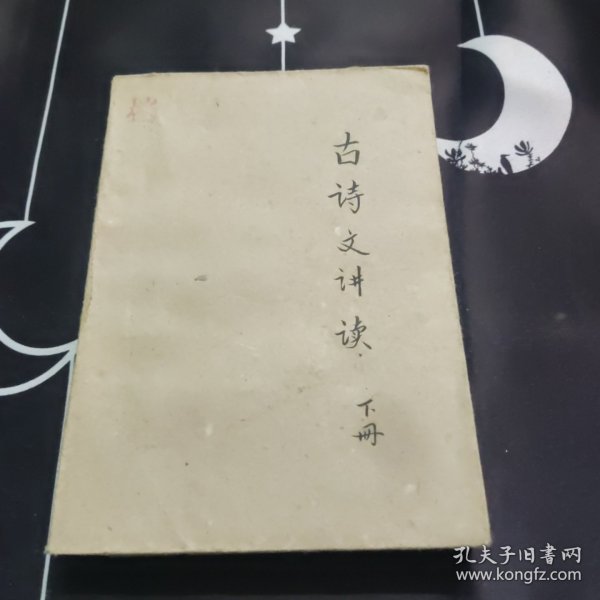 古诗文讲读
下冊
孔夫子旧書网
www.kongfz.com